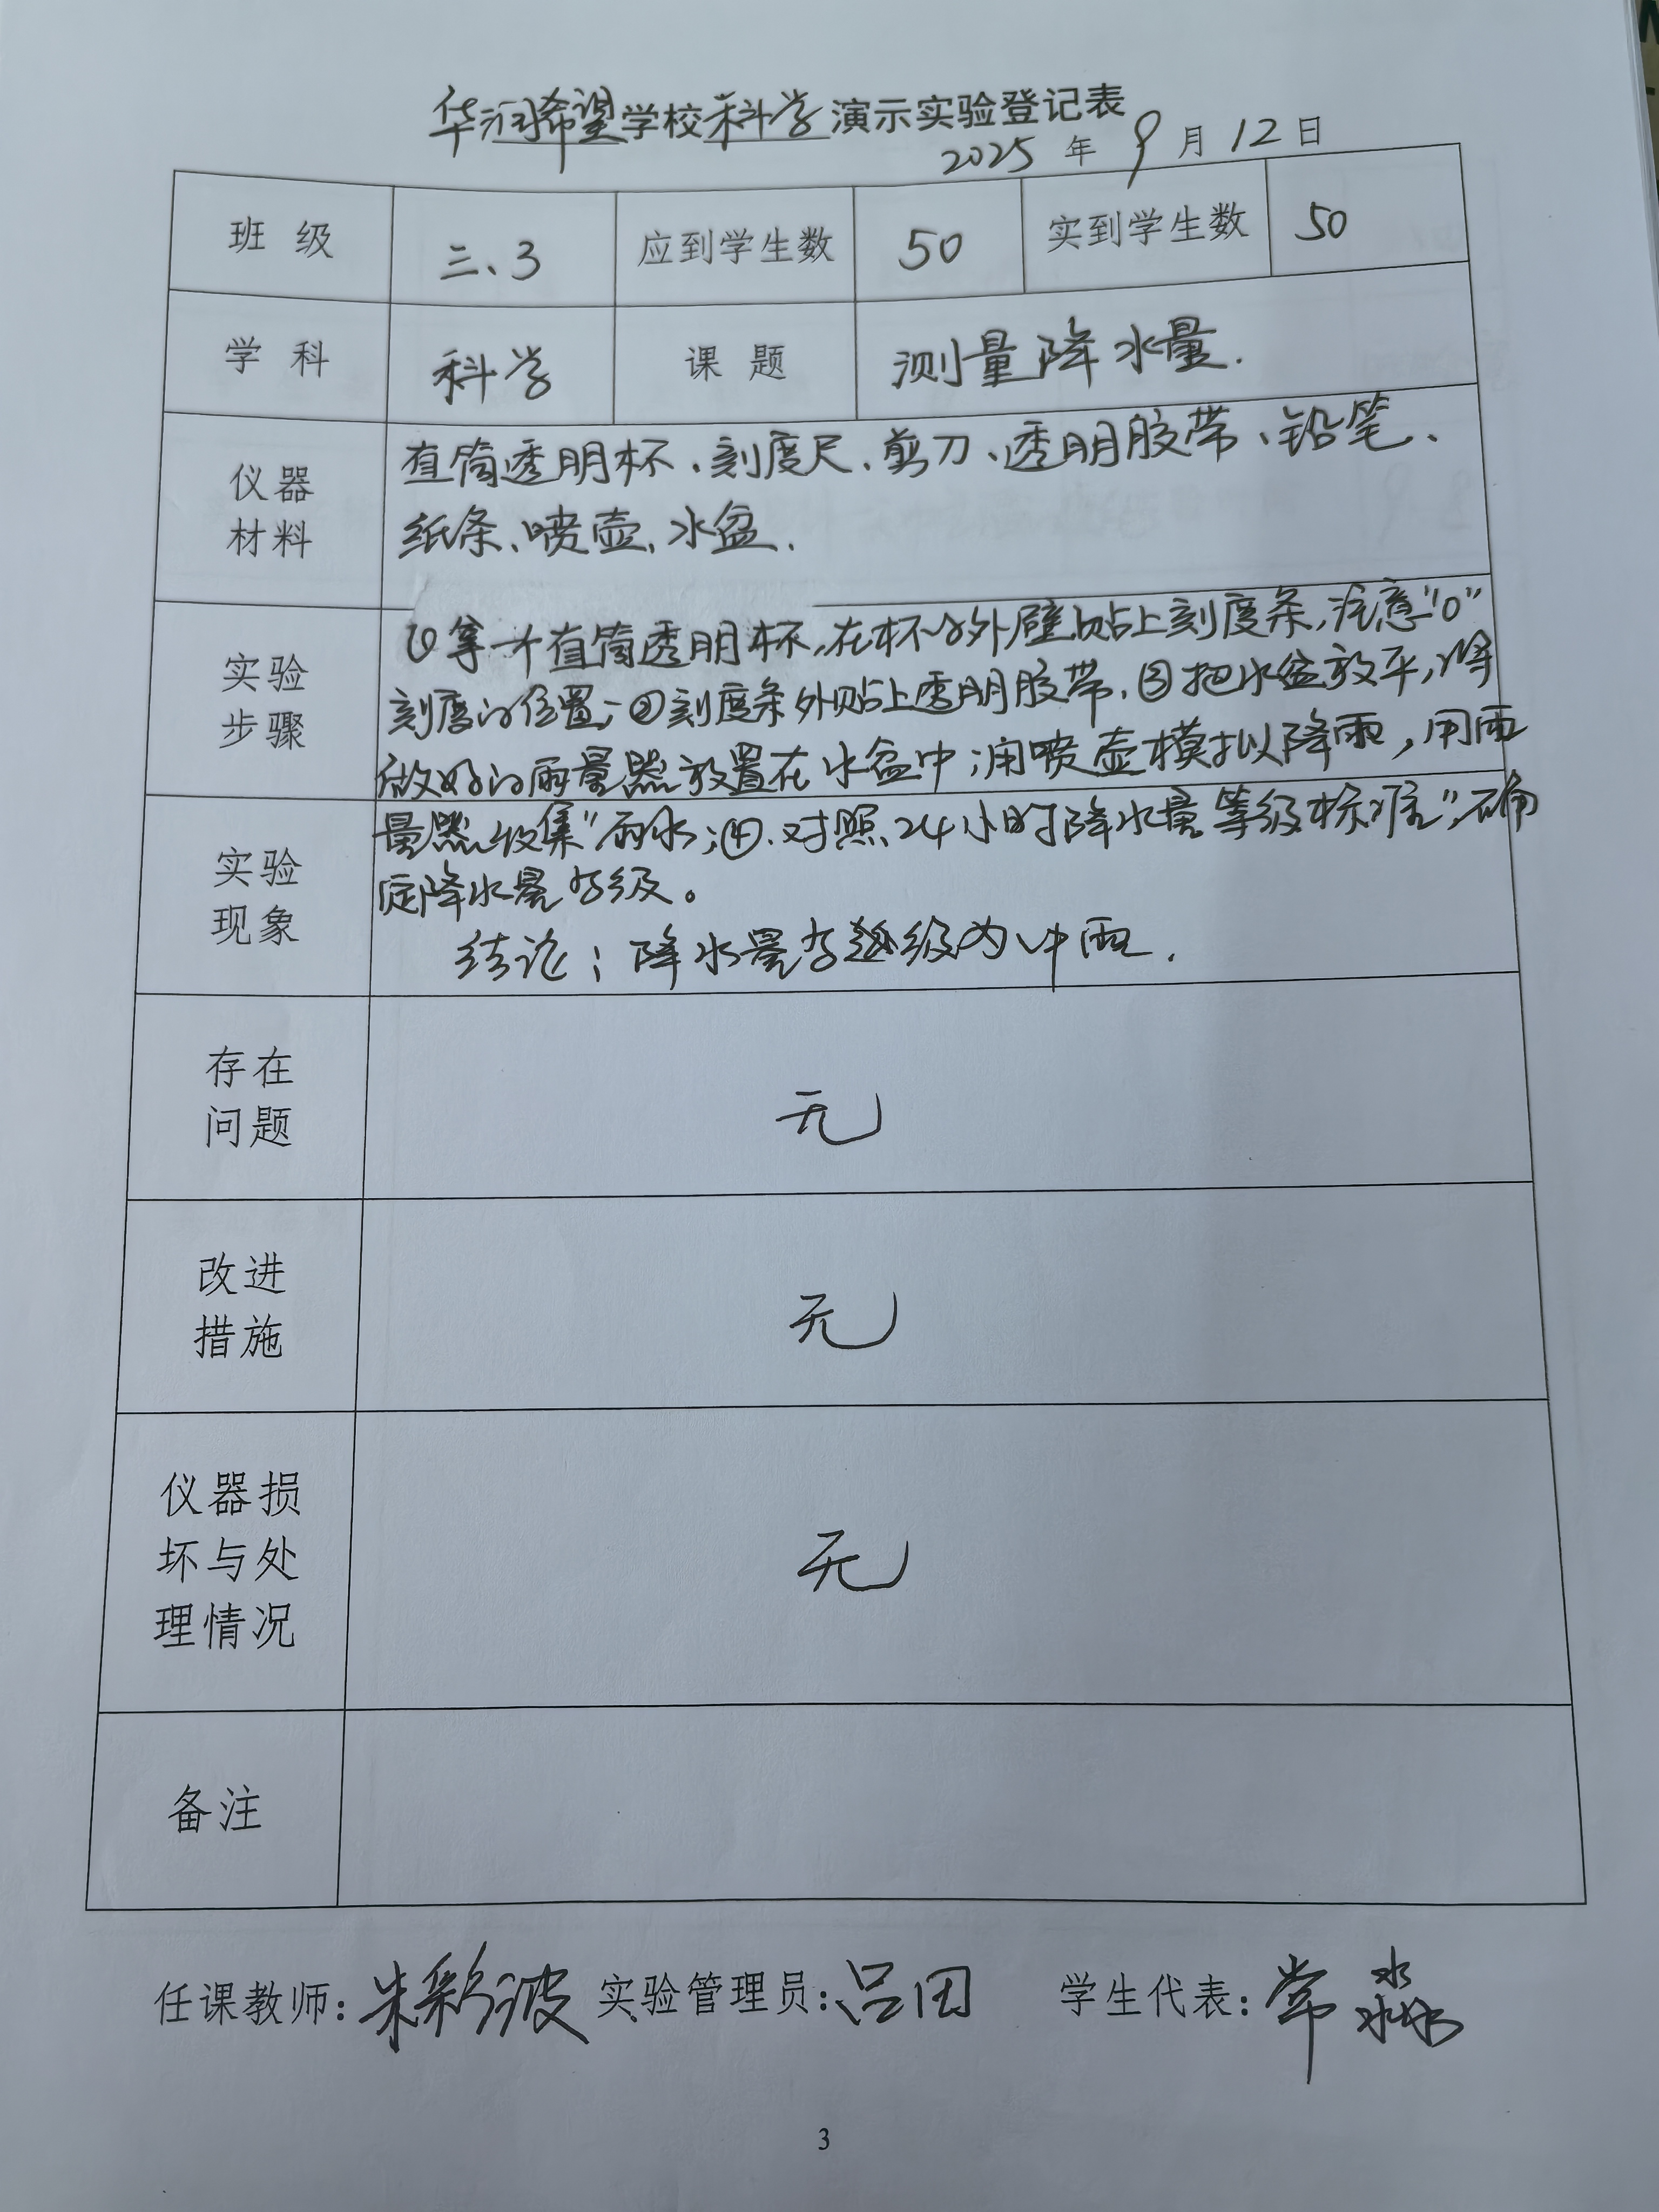 华润希望学校科学演示实验登记表
2025 年 9 月 12 日
班 级 三、3 应到学生数 50 实到学生数 50
学 科 科学 课 题 测量降水量.
仪器
材料
直筒透明杯、刻度尺、剪刀、透明胶带、铅笔、
纸条、喷壶、水盆.
实验
步骤
①拿一个直筒透明杯,在杯的外壁贴上刻度条,注意"0"
刻度的位置;②刻度条外贴上透明胶带.③把水盆放平,将
做好的雨量器放置在水盆中;用喷壶模拟降雨,用雨
实验
现象
量器收集"雨水;④.对照24小时降水量等级标准",确
定降水量等级。
结论:降水量等级为中雨.
存在
问题
无
改进
措施
无
仪器损
坏与处
理情况
无
备注
任课教师:朱彩波 实验管理员:吕田 学生代表:常淼
3